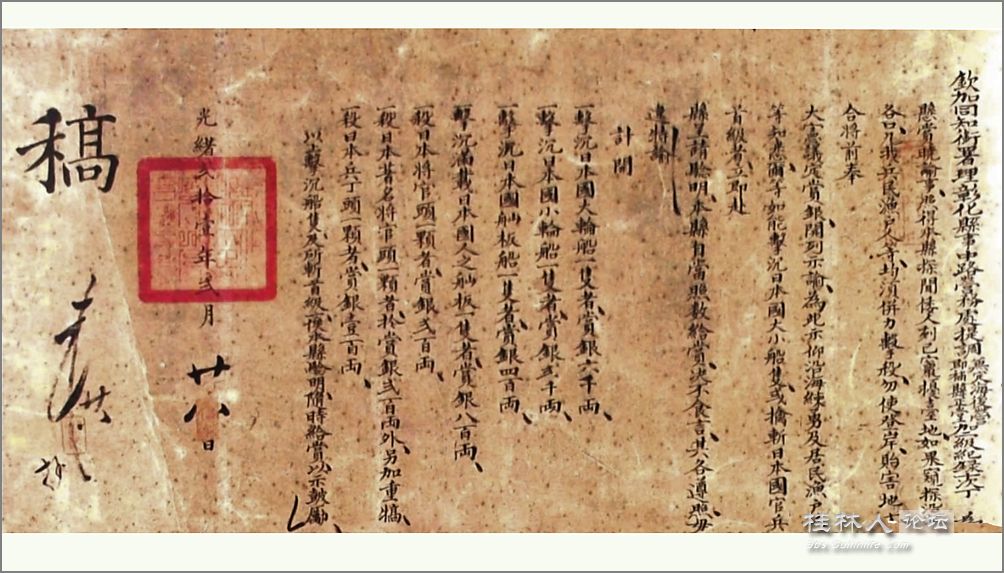 欽加同知銜署理彰化縣事中路營務處提調兼定海後營即補縣正堂加一級紀錄六次丁 為
懸賞曉諭事照得本縣探聞倭人刻已竄擾臺地如果窺探沿
各口凡我兵民漁戶人等均須併力轟殺勿使登岸貽害地方
合將前奉
大憲議定賞銀開列示諭為此示仰沿海練勇及居民漁戶
等知悉爾等如能擊沉日本國大小船隻或擒斬日本國官兵
首級者立即赴
縣呈請聽明本縣自當照數給賞決不食言其各遵照毋
違特諭
計開
一擊沉日本國大輪船一隻者賞銀六千両
一擊沉日本國小輪船一隻者賞銀弍千両
一擊沉日本國舢板船一隻者賞銀四百両
一擊沉滿載日本國人之舢板一隻者賞銀八百両
一殺日本將官頭一顆者賞銀弍百両
一殺日本著名將官頭一顆者於賞銀弍百両外另加重犒
一殺日本兵丁頭一顆者賞銀壹百両
以上擊沉船隻及所斬首級一俟本縣驗明隨時給賞以示鼓勵
光緒弍拾壹年弍月 廿八 日
稿
桂林人论坛
bbs.guilinlife.com